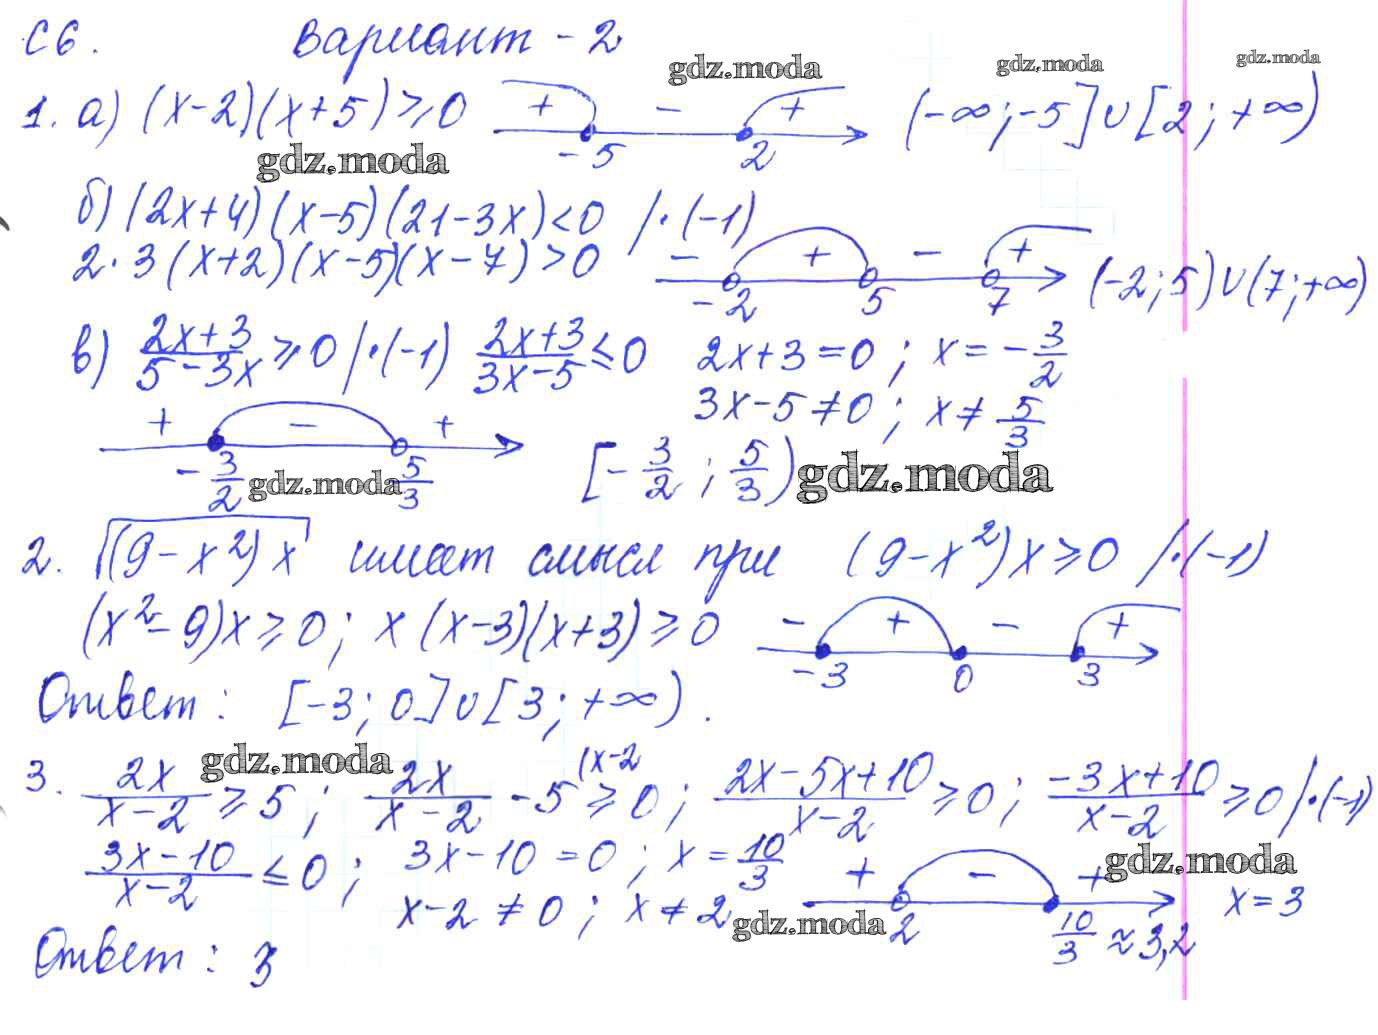 С6. Вариант - 2
gdz.moda gdz.moda gdz.moda
1. а) (x-2)(x+5)≥0 + - + -5 2 (-∞;-5]∪[2;+∞)
gdz.moda
б) (2x+4)(x-5)(21-3x)<0 /·(-1)
2·3(x+2)(x-5)(x-7)>0 - + - + -2 5 7 (-2;5)∪(7;+∞)
в) (2x+3)/(5-3x)≥0 /·(-1) (2x+3)/(3x-5)≤0 2x+3=0; x=-3/2
3x-5≠0; x≠5/3
+ - + -3/2 5/3 [-3/2; 5/3)
gdz.moda gdz.moda
2. √((9-x²)x) имеет смысл при (9-x²)x≥0 /·(-1)
(x²-9)x≥0; x(x-3)(x+3)≥0 - + - + -3 0 3
Ответ: [-3;0]∪[3;+∞).
gdz.moda
3. 2x/(x-2)≥5; 2x/(x-2)-5≥0; (x-2 (2x-5x+10)/(x-2)≥0; (-3x+10)/(x-2)≥0 /·(-1)
(3x-10)/(x-2)≤0; 3x-10=0; x=10/3 + - + gdz.moda
x-2≠0; x≠2 gdz.moda 2 10/3≈3,2 x=3
Ответ: 3